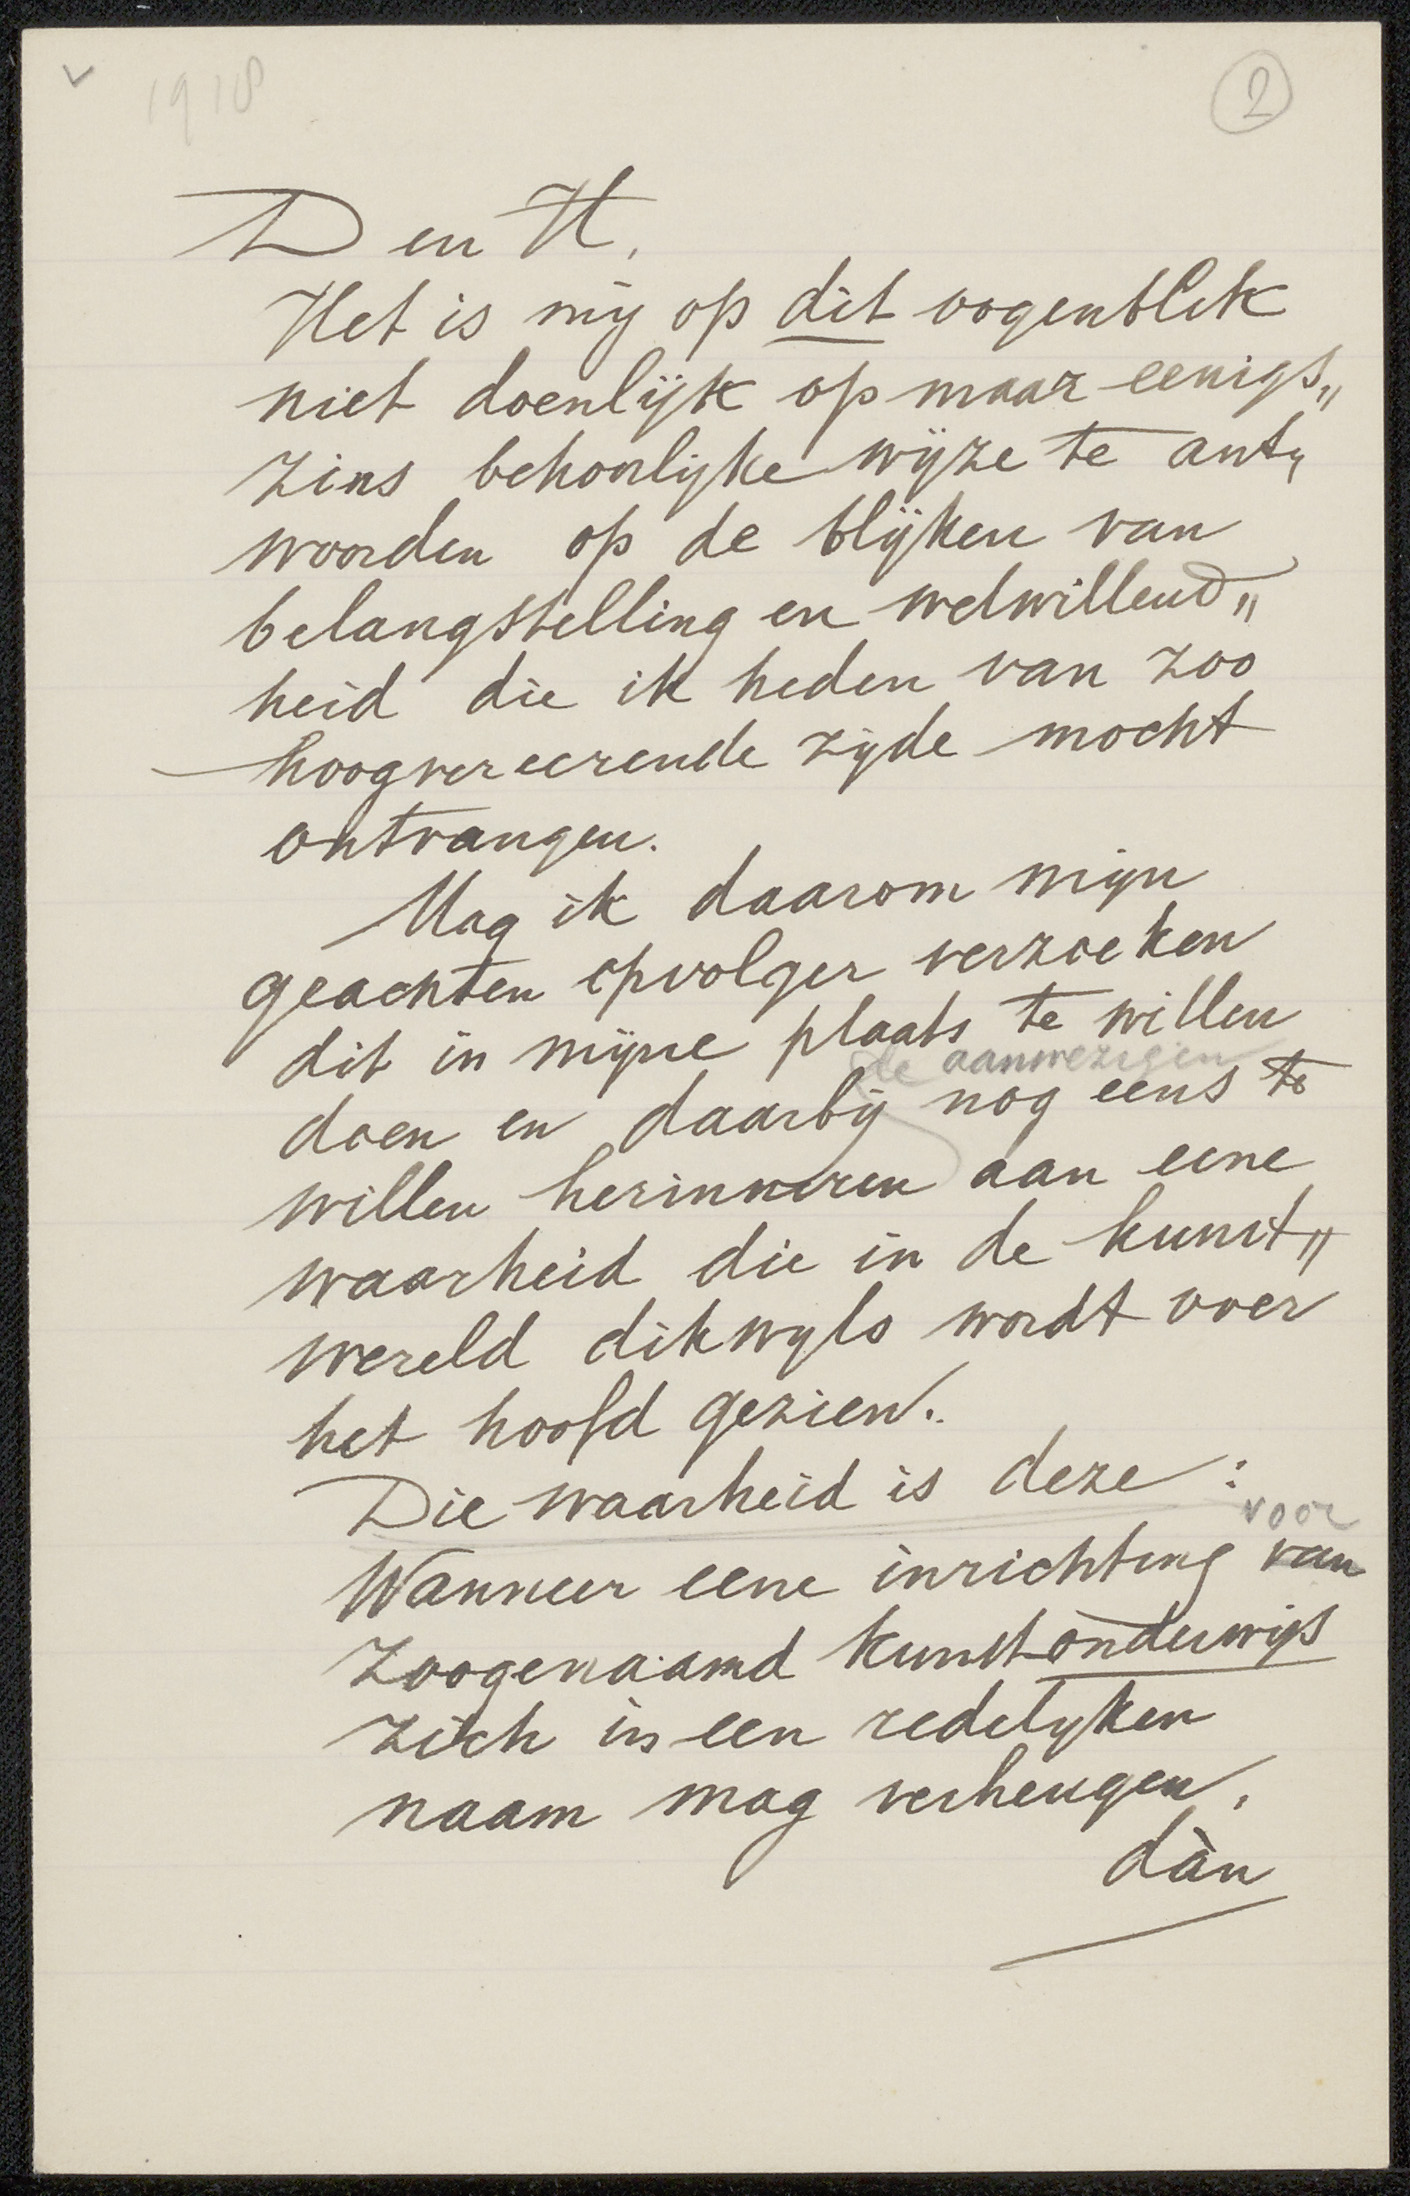 1918
2
Den H.
Het is mij op dit oogenblik
niet doenlijk op maar eenigs„
zins behoorlijke wijze te ant„
woorden op de blijken van
belangstelling en welwillend„
heid die ik heden van zoo
hoogvereerende zijde mocht
ontvangen.
Mag ik daarom mijn
geachten opvolger verzoeken
dit in mijne plaats te willen
de aanwezigen
doen en daarbij nog eens te
willen herinneren aan eene
waarheid die in de kunst„
wereld dikwyls wordt over
het hoofd gezien.
Die waarheid is deze:
voor
Wanneer eene inrichting van
zoogenaamd kunstonderwijs
zich in een redelyken
naam mag verheugen,
dàn